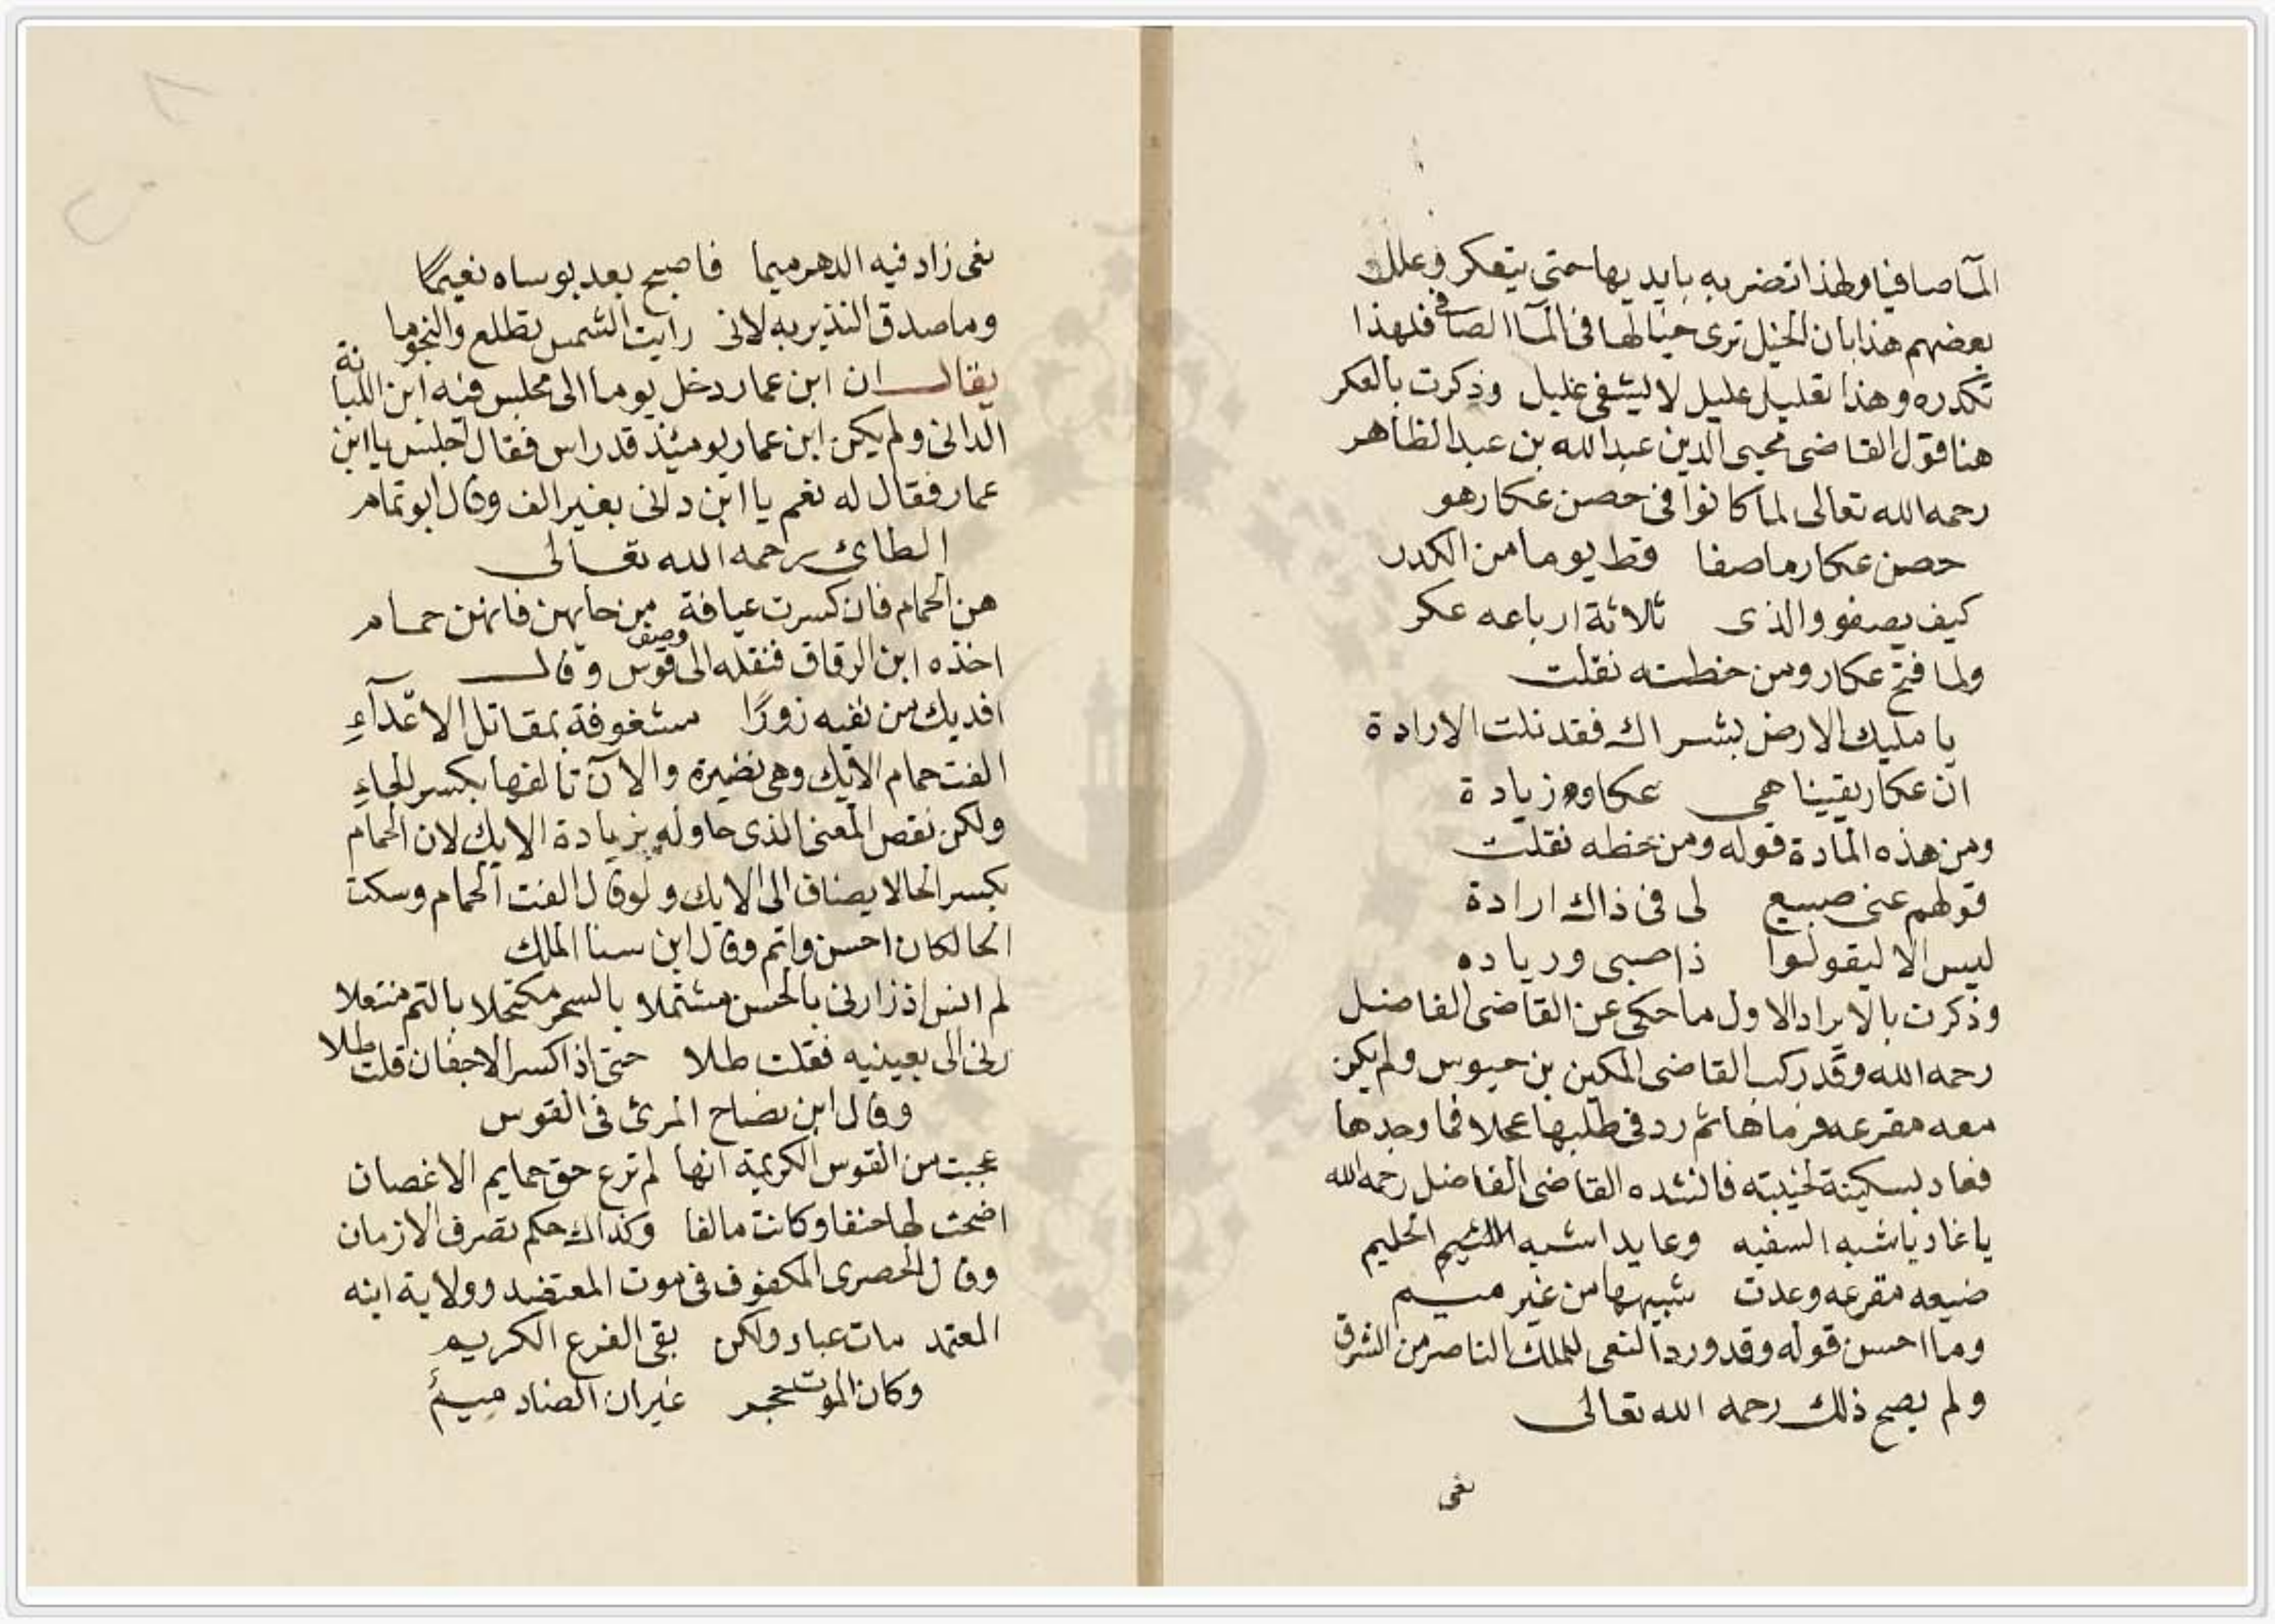 المآ صافيا ولهذا تضربه بايديها حتى يتعكر وعلل
بعضهم هذا بان الخيل ترى خيالها فى المآ الصافى فلهذا
تكدره وهذا تعليل عليل لا يشفى غليل وذكرت بالعكر
هنا قول القاضى محيى الدين عبد الله بن عبد الظاهر
رحمه الله تعالى لما كانوا فى حصن عكار هو
حصن عكار ما صفا قط يوما من الكدر
كيف يصفو والذى ثلاثة ارباعه عكر
ولما فتح عكار ومن خطه نقلت
يا مليك الارض بشراك فقد نلت الارادة
ان عكار يقينا هى عكا وزيادة
ومن هذه المادة قوله ومن خطه نقلت
قولهم عنى صبيع لى فى ذاك ارادة
ليس الا ليقولوا ذا صبى وزياده
وذكرت بالايراد الاول ما حكى عن القاضى الفاضل
رحمه الله وقد ركب القاضى المكين بن حيوس ولم يكن
معه مقرعه فرماها ثم رد فى طلبها عجلا فما وجدها
فعاد بسكينة لخيبته فانشده القاضى الفاضل رحمه الله
يا غاديا شبه السفيه وعايدا شبه الحليم
ضيعه مقرعه وعدت شبيهها من غير ميم
وما احسن قوله وقد ورد النعى للملك الناصر من الشرق
ولم يصح ذلك رحمه الله تعالى
نعى
نعى زاد فيه الدهر ميما فاصبح بعد بوساه نعيمًا
وما صدق النذير به لانى رايت الشمس تطلع والنجوما
يقال ان ابن عمار دخل يوما الى مجلس فيه ابن اللبانة
الدانى ولم يكن ابن عمار يومئذ قد راس فقال اجلس يا ابن
عمار فقال له نعم يا ابن دانى بغير الف وقال ابو تمام
الطائى رحمه الله تعالى
هن الحمام فان كسرت عيافة من حايهن فانهن حمام
اخذه ابن الزقاق فنقله الى وصف قوس وقال
افديك من نبعيه زورًا مشغوفة بمقاتل الاعدآء
الفت حمام الايك وهى نضيرة والآن تالفها بكسر الحاء
ولكن نقص المعنى الذى حاوله بزيادة الايك لان الحمام
بكسر الحا لا يضاف الى الايك ولو قال الفت الحمام وسكت
الحا لكان احسن واتم وقال ابن سنا الملك
لم انس اذ زارنى بالحسن مشتملا بالسحر مكتحلا بالتم منتعلا
رنى الى بعينيه فقلت طلا حتى اذا كسر الاجفان قلت طلا
وقال ابن نضاح المرى فى القوس
عجبت من القوس الكريمة انها لم ترع حق حمايم الاغصان
اضحت لها حتفا وكانت مالفا وكذاك حكم تصرف الازمان
وقال الحصرى المكفوف فى موت المعتضد وولاية ابنه
المعتمد مات عباد ولكن بقى الفرع الكريم
وكان الموت غير ان الضاد ميم